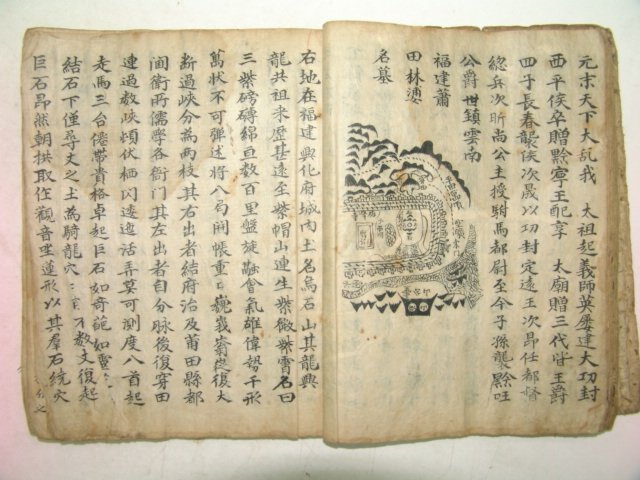 元末天下大乱我 太祖起義師英屡建大功封
西平侯卒贈黔寧王配享 太廟贈三代皆王爵
四子長春襲侯次晟以功封定遠王次昂任都督
總兵次昕尚公主授駙馬都尉至今子孫襲黔国
公爵世鎮雲南
福建蕭
田林婆
名墓
右地在福建興化府城内土名烏石山其龍與
龍共祖来歷甚遠至紫帽山連生紫微紫雪名曰
三紫磅礴綿亘数百里盤旋融會氣雄偉勢千形
萬状不可殫述将入局開帳重巍峩嵡從復大
断過峡分為两枝其右出者結府治及莆田縣都
間衛两儒學各衙門其左出者自分脉後復穿田
連過数峡頓伏栖閃逶迤活弄莫可測度入首起
走馬三台倦帶貴格卓起巨石如奇葩如靈
結石下僅尋丈之土為騎龍穴 数丈復起
巨石昂然朝拱取作觀音坐蓮形以其羣石統穴